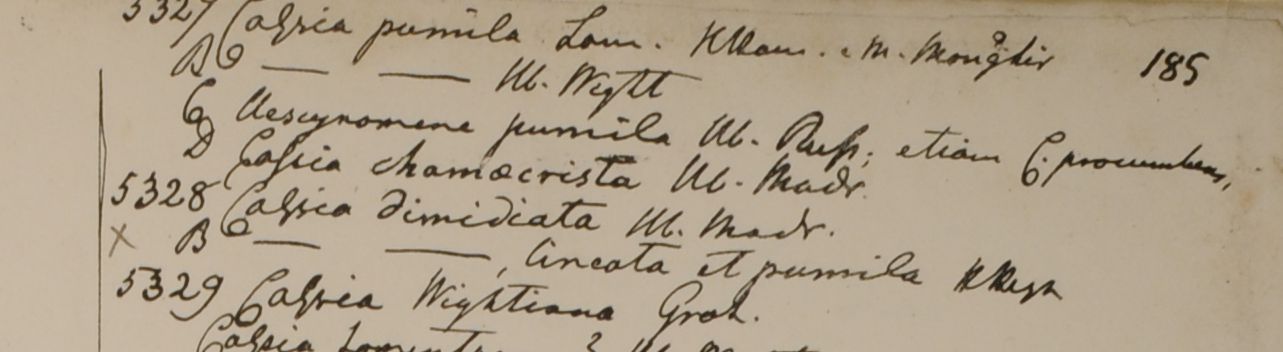 5327 Cassia pumila Lam. HHam. e M. Monghir 185
B C — — Hb. Wight
C Aescynomene pumila Hb. Russ; etiam C. procumbens,
D Cassia chamaecrista Hb. Madr.
5328 Cassia dimidiata Hb. Madr.
× B C — —, lineata et pumila
5329 Cassia Wightiana Grah.
Cassia ?